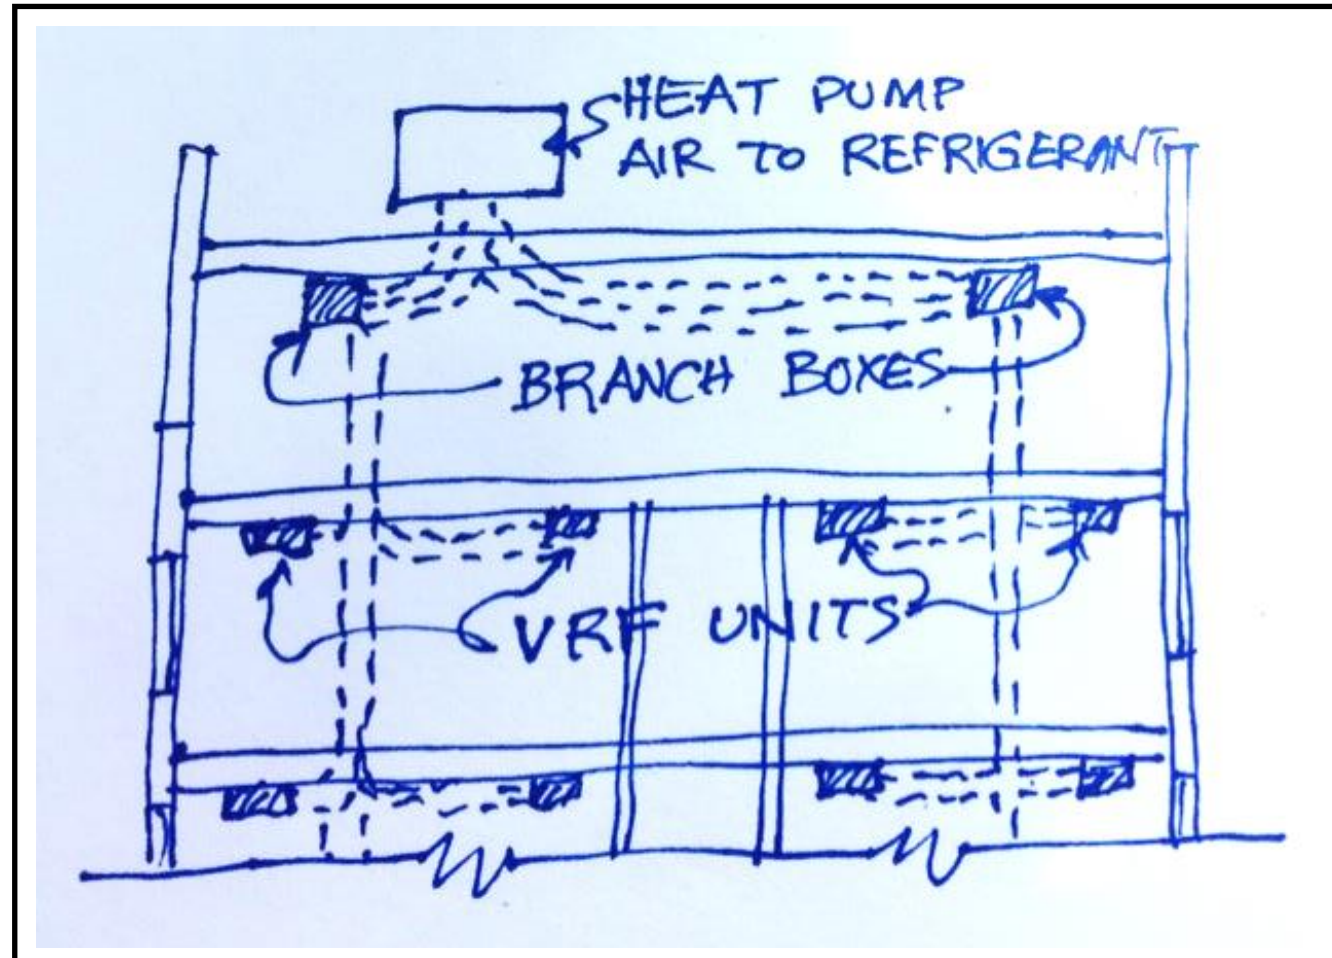 HEAT PUMP
AIR TO REFRIGERANT
BRANCH BOXES
VRF UNITS